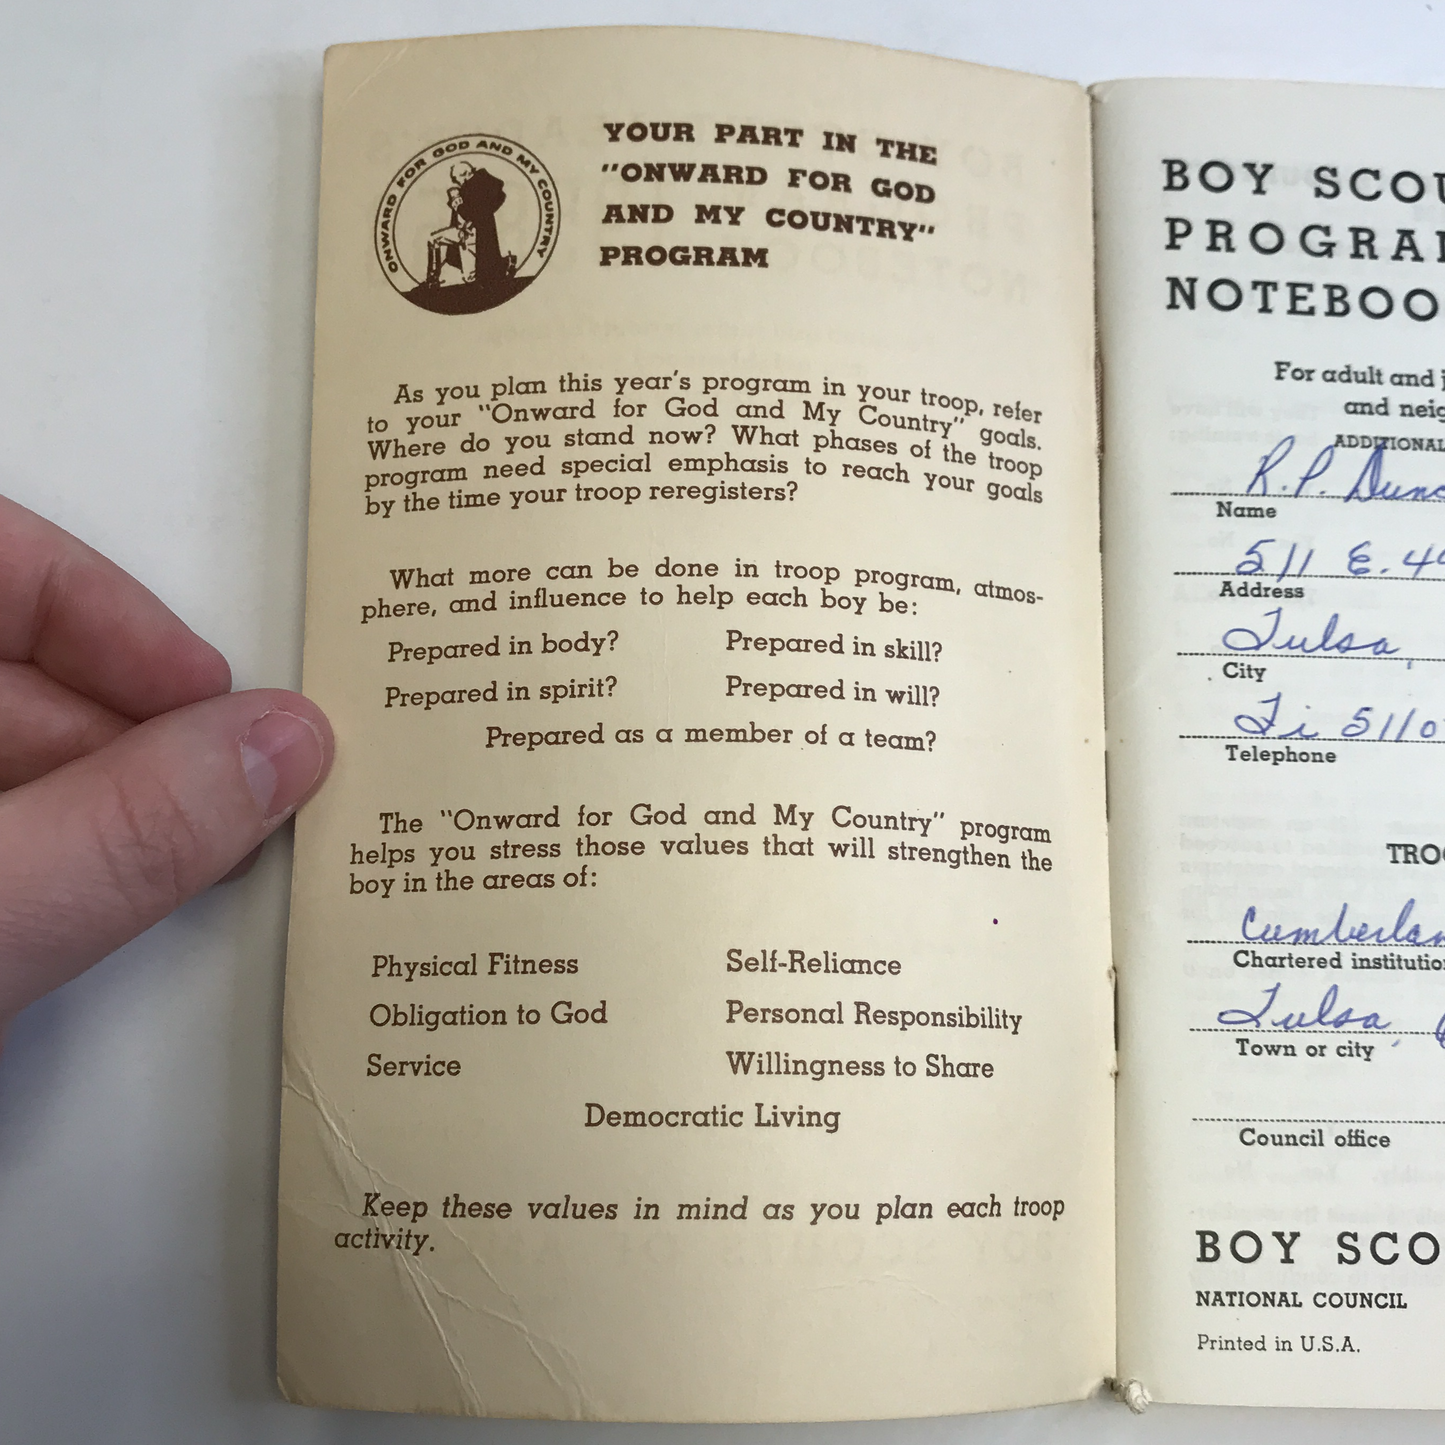 ONWARD FOR GOD AND MY COUNTRY
YOUR PART IN THE
"ONWARD FOR GOD
AND MY COUNTRY"
PROGRAM
As you plan this year's program in your troop, refer
to your "Onward for God and My Country" goals.
Where do you stand now? What phases of the troop
program need special emphasis to reach your goals
by the time your troop reregisters?
What more can be done in troop program, atmos-
phere, and influence to help each boy be:
Prepared in body? Prepared in skill?
Prepared in spirit? Prepared in will?
Prepared as a member of a team?
The "Onward for God and My Country" program
helps you stress those values that will strengthen the
boy in the areas of:
Physical Fitness Self-Reliance
Obligation to God Personal Responsibility
Service Willingness to Share
Democratic Living
Keep these values in mind as you plan each troop
activity.
BOY SCOU
PROGRA
NOTEBOO
For adult and
and neig
ADDITIONAL
R.P. Dunc
Name
511 E. 4
Address
Tulsa,
City
Di 5110
Telephone
TRO
Cumberlan
Chartered institutio
Tulsa,
Town or city
Council office
BOY SCO
NATIONAL COUNCIL
Printed in U.S.A.